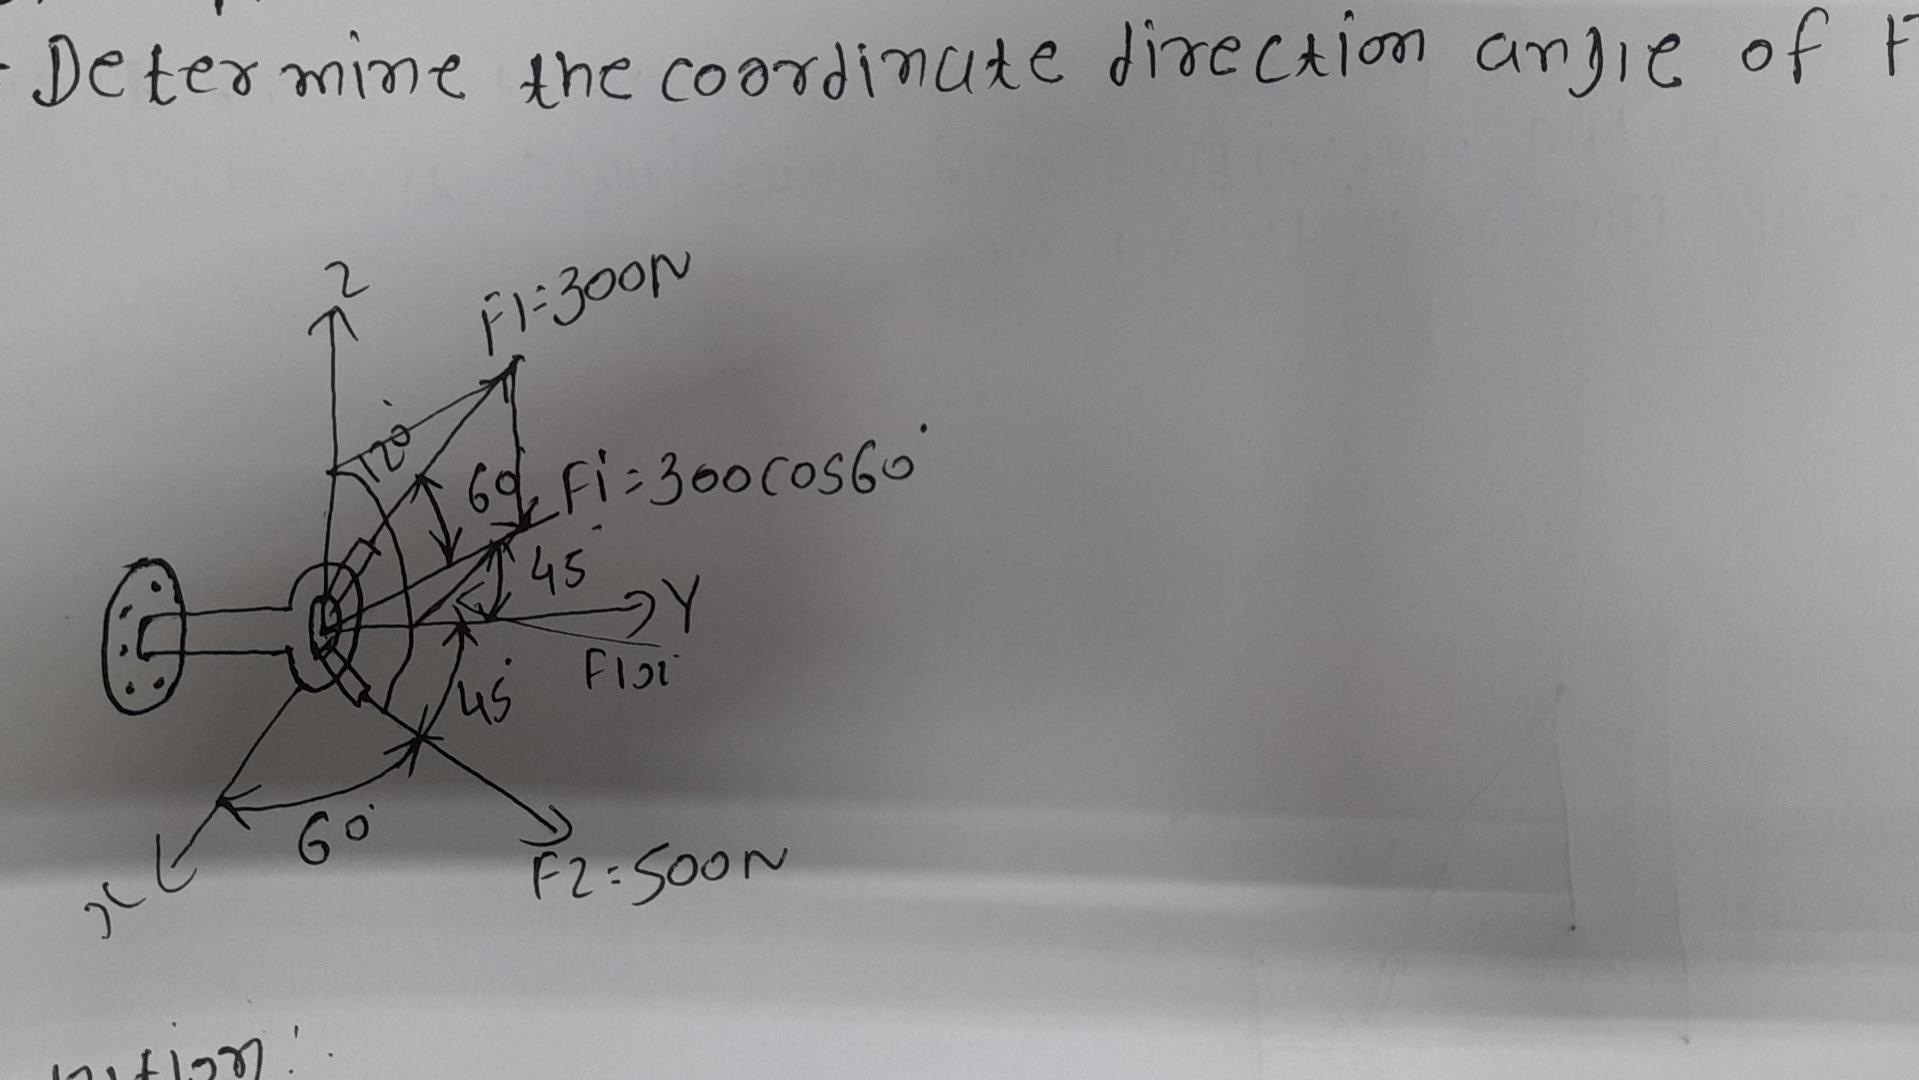 Determine the coordinate direction angle of F
Z
F1=300N
120°
60
Fi=300cos60°
45°
Y
45°
60°
F2=500N
x